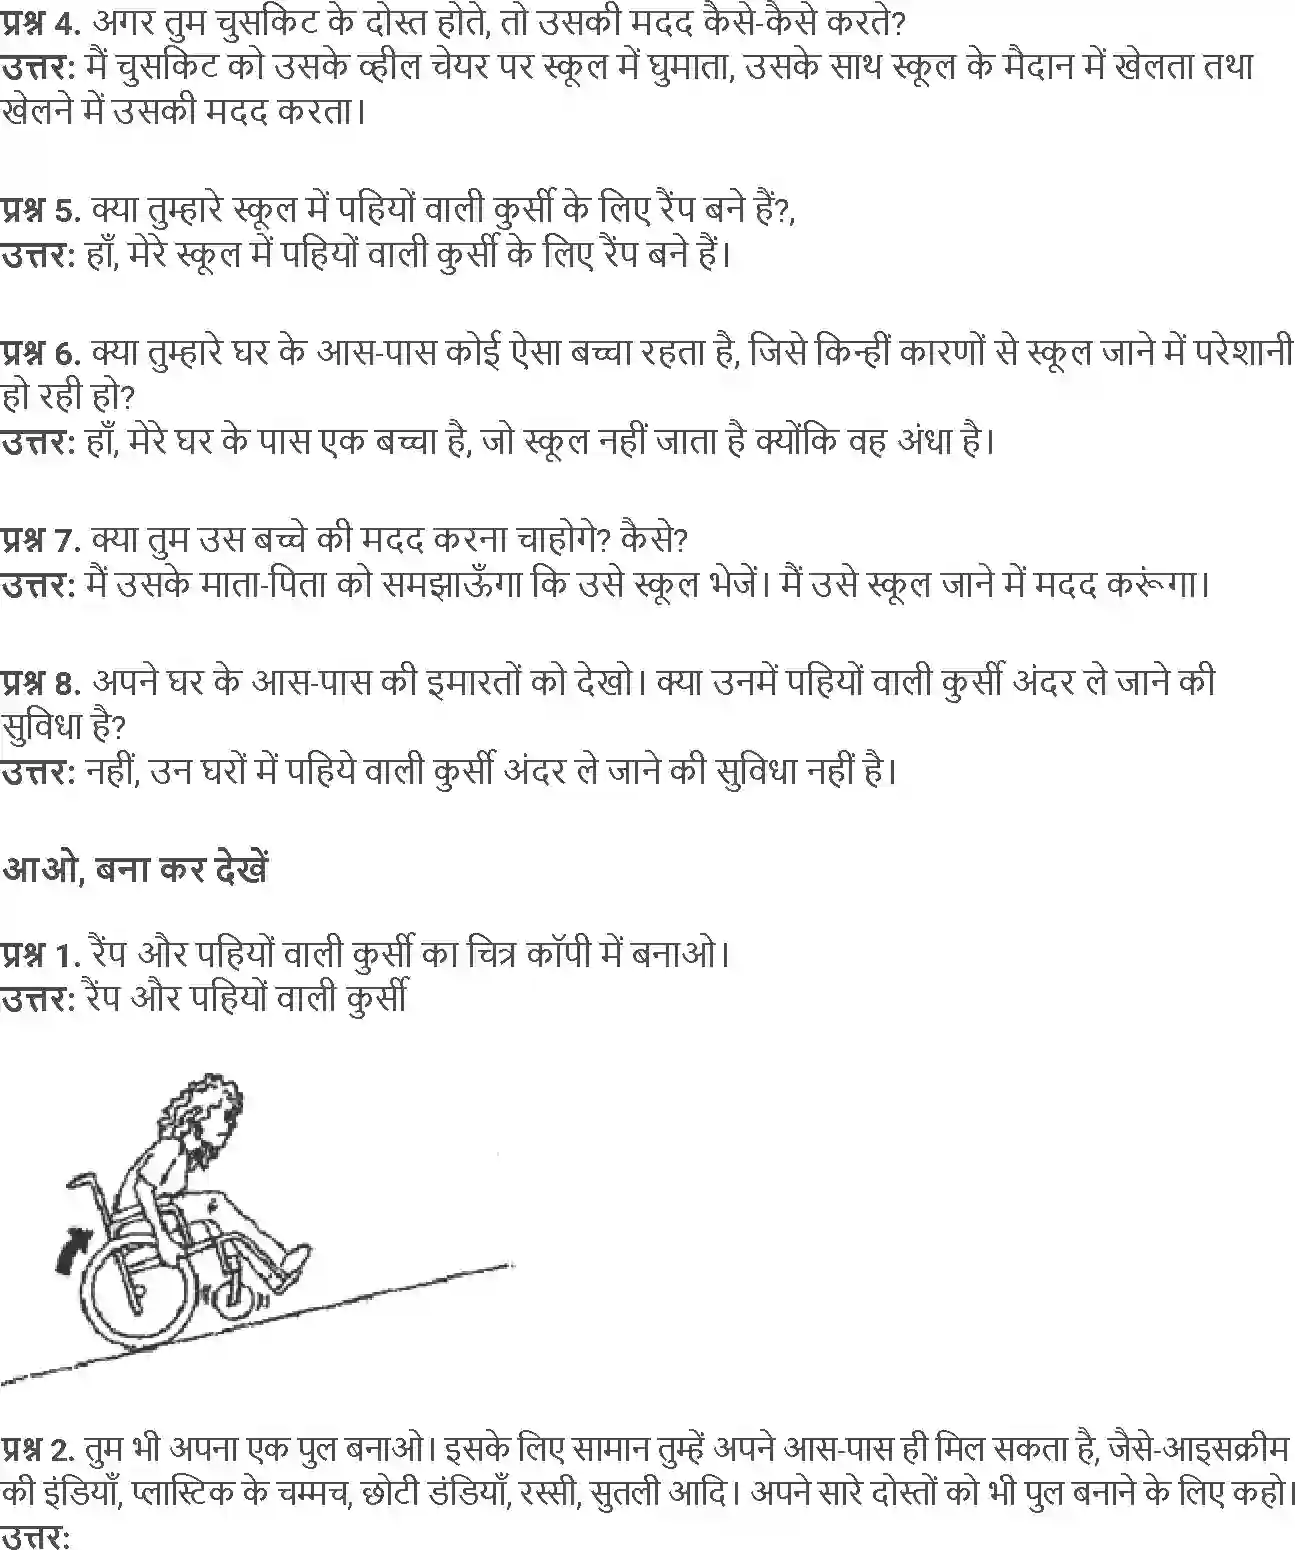 प्रश्न 4. अगर तुम चुसकिट के दोस्त होते, तो उसकी मदद कैसे-कैसे करते?
उत्तर: मैं चुसकिट को उसके व्हील चेयर पर स्कूल में घुमाता, उसके साथ स्कूल के मैदान में खेलता तथा
खेलने में उसकी मदद करता।
प्रश्न 5. क्या तुम्हारे स्कूल में पहियों वाली कुर्सी के लिए रैंप बने हैं?,
उत्तर: हाँ, मेरे स्कूल में पहियों वाली कुर्सी के लिए रैंप बने हैं।
प्रश्न 6. क्या तुम्हारे घर के आस-पास कोई ऐसा बच्चा रहता है, जिसे किन्हीं कारणों से स्कूल जाने में परेशानी
हो रही हो?
उत्तर: हाँ, मेरे घर के पास एक बच्चा है, जो स्कूल नहीं जाता है क्योंकि वह अंधा है।
प्रश्न 7. क्या तुम उस बच्चे की मदद करना चाहोगे? कैसे?
उत्तर: मैं उसके माता-पिता को समझाऊँगा कि उसे स्कूल भेजें। मैं उसे स्कूल जाने में मदद करूंगा।
प्रश्न 8. अपने घर के आस-पास की इमारतों को देखो। क्या उनमें पहियों वाली कुर्सी अंदर ले जाने की
सुविधा है?
उत्तर: नहीं, उन घरों में पहिये वाली कुर्सी अंदर ले जाने की सुविधा नहीं है।
आओ, बना कर देखें
प्रश्न 1. रैंप और पहियों वाली कुर्सी का चित्र कॉपी में बनाओ।
उत्तर: रैंप और पहियों वाली कुर्सी
प्रश्न 2. तुम भी अपना एक पुल बनाओ। इसके लिए सामान तुम्हें अपने आस-पास ही मिल सकता है, जैसे-आइसक्रीम
की इंडियाँ, प्लास्टिक के चम्मच, छोटी डंडियाँ, रस्सी, सुतली आदि। अपने सारे दोस्तों को भी पुल बनाने के लिए कहो।
उत्तर: